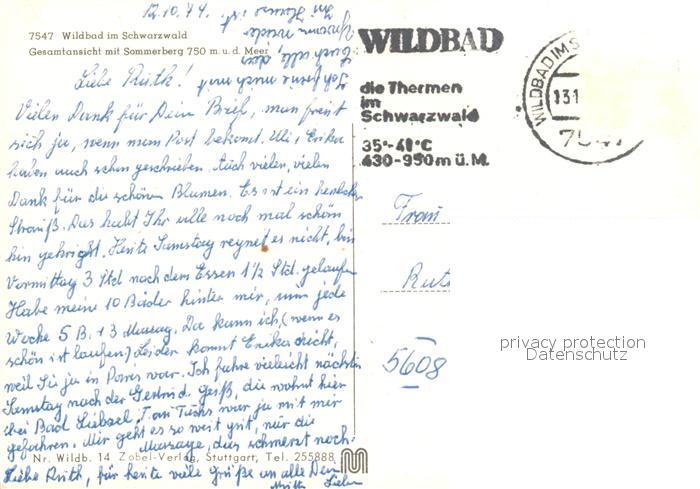 12.10.74.
7547 Wildbad im Schwarzwald
Gesamtansicht mit Sommerberg 750 m. u. d. Meer
Liebe Ruth!
Vielen Dank für Dein Brief, man freut
sich ja, wenn man Post bekomt. Uli, Erika
haben auch schon geschrieben. Auch vielen, vielen
Dank für die schönen Blumen. Es ist ein
Strauß. Das habt Ihr alle noch mal schön
hin gekrigt. Heute Samstag reynet es nicht, bin
Vormittag 3 Std nach dem Essen 1 1/2 Std. gelaufen
Habe meine 10 Bäder hinter mir, nun jede
Woche 5 B. + 3 Massag. Da kann ich, (wenn es
schön ist laufen) Leider komt Erika nicht,
weil Sie ja in Paris war. Ich fahre vieleicht nächsten
Samstag nach der Gertrud, die wohnt hier
bei Bad Liebzel. war ja mit mir
gefahren. Mir geht es so weit gut, nur die
Massage, das schmerzt noch.
Nr. Wildb. 14 Zobel-Verlag, Stuttgart, Tel. 255888
Liebe Ruth, für heute viele Grüße an alle Dein
WILDBAD
die Thermen
im
Schwarzwald
35°-41°C
430-950m ü.M.
WILDBAD IM S
13.1
Frau
5608
privacy protection
Datenschutz